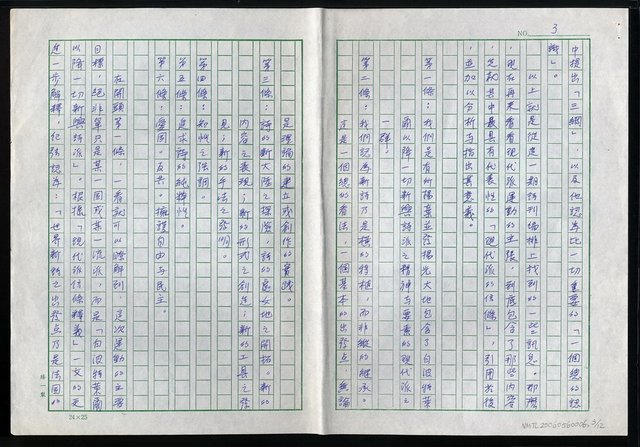 NO. 3
中提出「三綱」，以及他認為比一切重要的「一個總的認
識」。
以上就是從這一期詩刊編排上找到的一些訊息。那麼
現在再來看看現代派運動的主張，到底包含了那些內容
，先就其中最具有代表性的「現代派的信條」，引用於後
，並加以分析與指出其意義。
第一條：我們是有所揚棄並發揚光大地包含了自波特萊
爾以降一切新興詩派之精神與要素的現代派之
一群。
第二條：我們認為新詩乃是橫的移植，而非縱的繼承。
這是一個總的看法，一個基本的出發點，無論
是理論的建立或創作的實踐。
第三條：詩的新大陸之探險，詩的處女地之開拓。新的
內容之表現；新的形式之創造；新的工具之發
見；新的手法之發明。
第四條：知性之強調。
第五條：追求詩的純粹性。
第六條：愛國。反共。擁護自由與民主。
在開頭第一條，一看就可以瞭解到，是次運動的主要
目標，絕非單只是某一國或某一流派，而是「自波特萊爾
以降一切新興詩派」。根據「現代派信條釋義」一文的更
進一步解釋，紀弦認為：「世界新詩之出發點乃是法國的
24×25
NMTL20060560006, 3/12